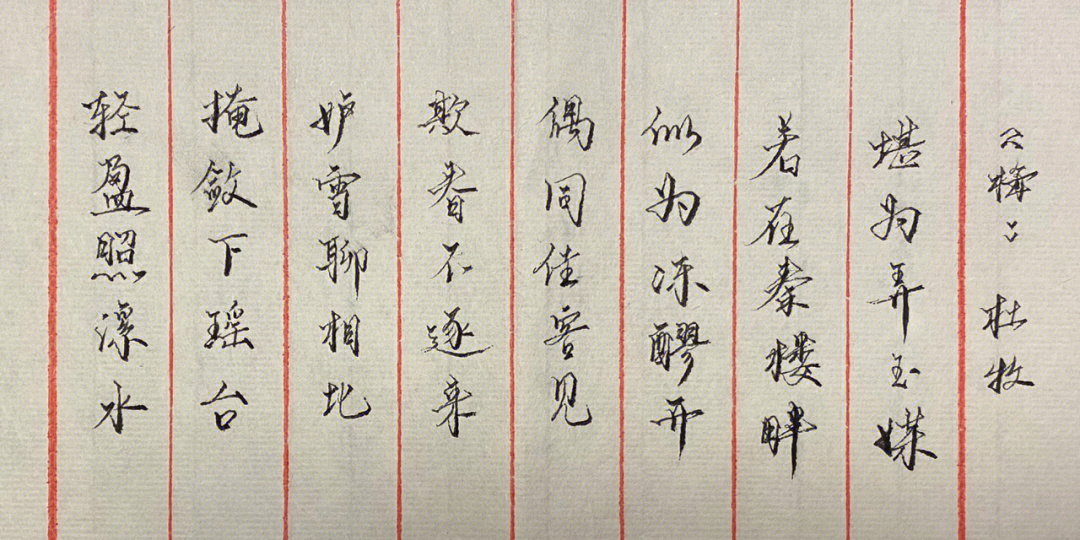 轻盈照溧水
掩敛下瑶台
妒雪聊相比
欺春不逐来
偶同佳客见
似为冻醪开
若在秦楼畔
堪为弄玉媒
《梅》 杜牧